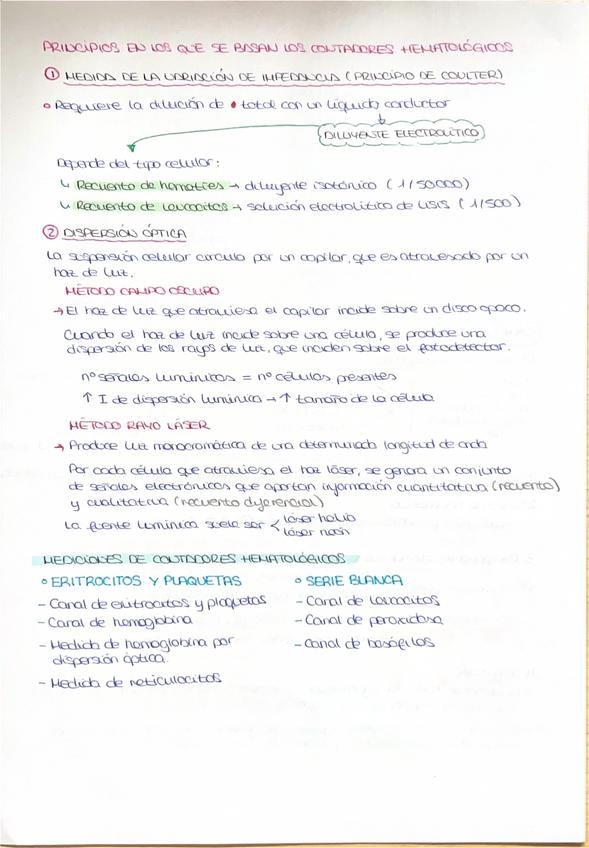 PRINCIPIOS EN LOS QUE SE BASAN LOS CONTADORES HEMATOLÓGICOS
① MEDIDA DE LA VARIACIÓN DE IMPEDANCIA (PRINCIPIO DE COULTER)
Requiere la dilución de total con un líquido conductor
DILUYENTE ELECTROLÍTICO
Depende del tipo celular:
↳ Recuento de hematíes → diluyente isotónico (1/50000)
↳ Recuento de leucocitos → solución electrolítica de lisis (1/500)
② DISPERSIÓN ÓPTICA
La suspensión celular circula por un capilar, que es atravesado por un
haz de luz.
MÉTODO CAMPO OSCURO
→ El haz de luz que atraviesa el capilar incide sobre un disco opaco.
Cuando el haz de luz incide sobre una célula, se produce una
dispersión de los rayos de luz, que inciden sobre el fotodetector.
nº señales lumínicas = nº células presentes
↑ I de dispersión lumínica → ↑ tamaño de la célula
MÉTODO RAYO LÁSER
→ Produce luz monocromática de una determinada longitud de onda
Por cada célula que atraviesa el haz láser, se genera un conjunto
de señales electrónicas que aportan información cuantitativa (recuento)
y cualitativa (recuento diferencial)
La fuente lumínica suele ser < láser helio
láser neón
MEDICIONES DE CONTADORES HEMATOLÓGICOS
ERITROCITOS Y PLAQUETAS
- Canal de eritrocitos y plaquetas
- Canal de hemoglobina
- Medida de hemoglobina por
dispersión óptica.
- Medida de reticulocitos
SERIE BLANCA
- Canal de leucocitos
- Canal de peroxidasa
- Canal de basófilos